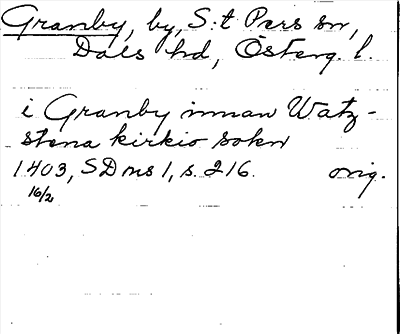 Granby, by, S:t Pers sn,
Dals hd, Österg. l.
i Granby innan Watz-
stena kirkio sokn
1403, SD ns 1, s. 216. orig.
16/2